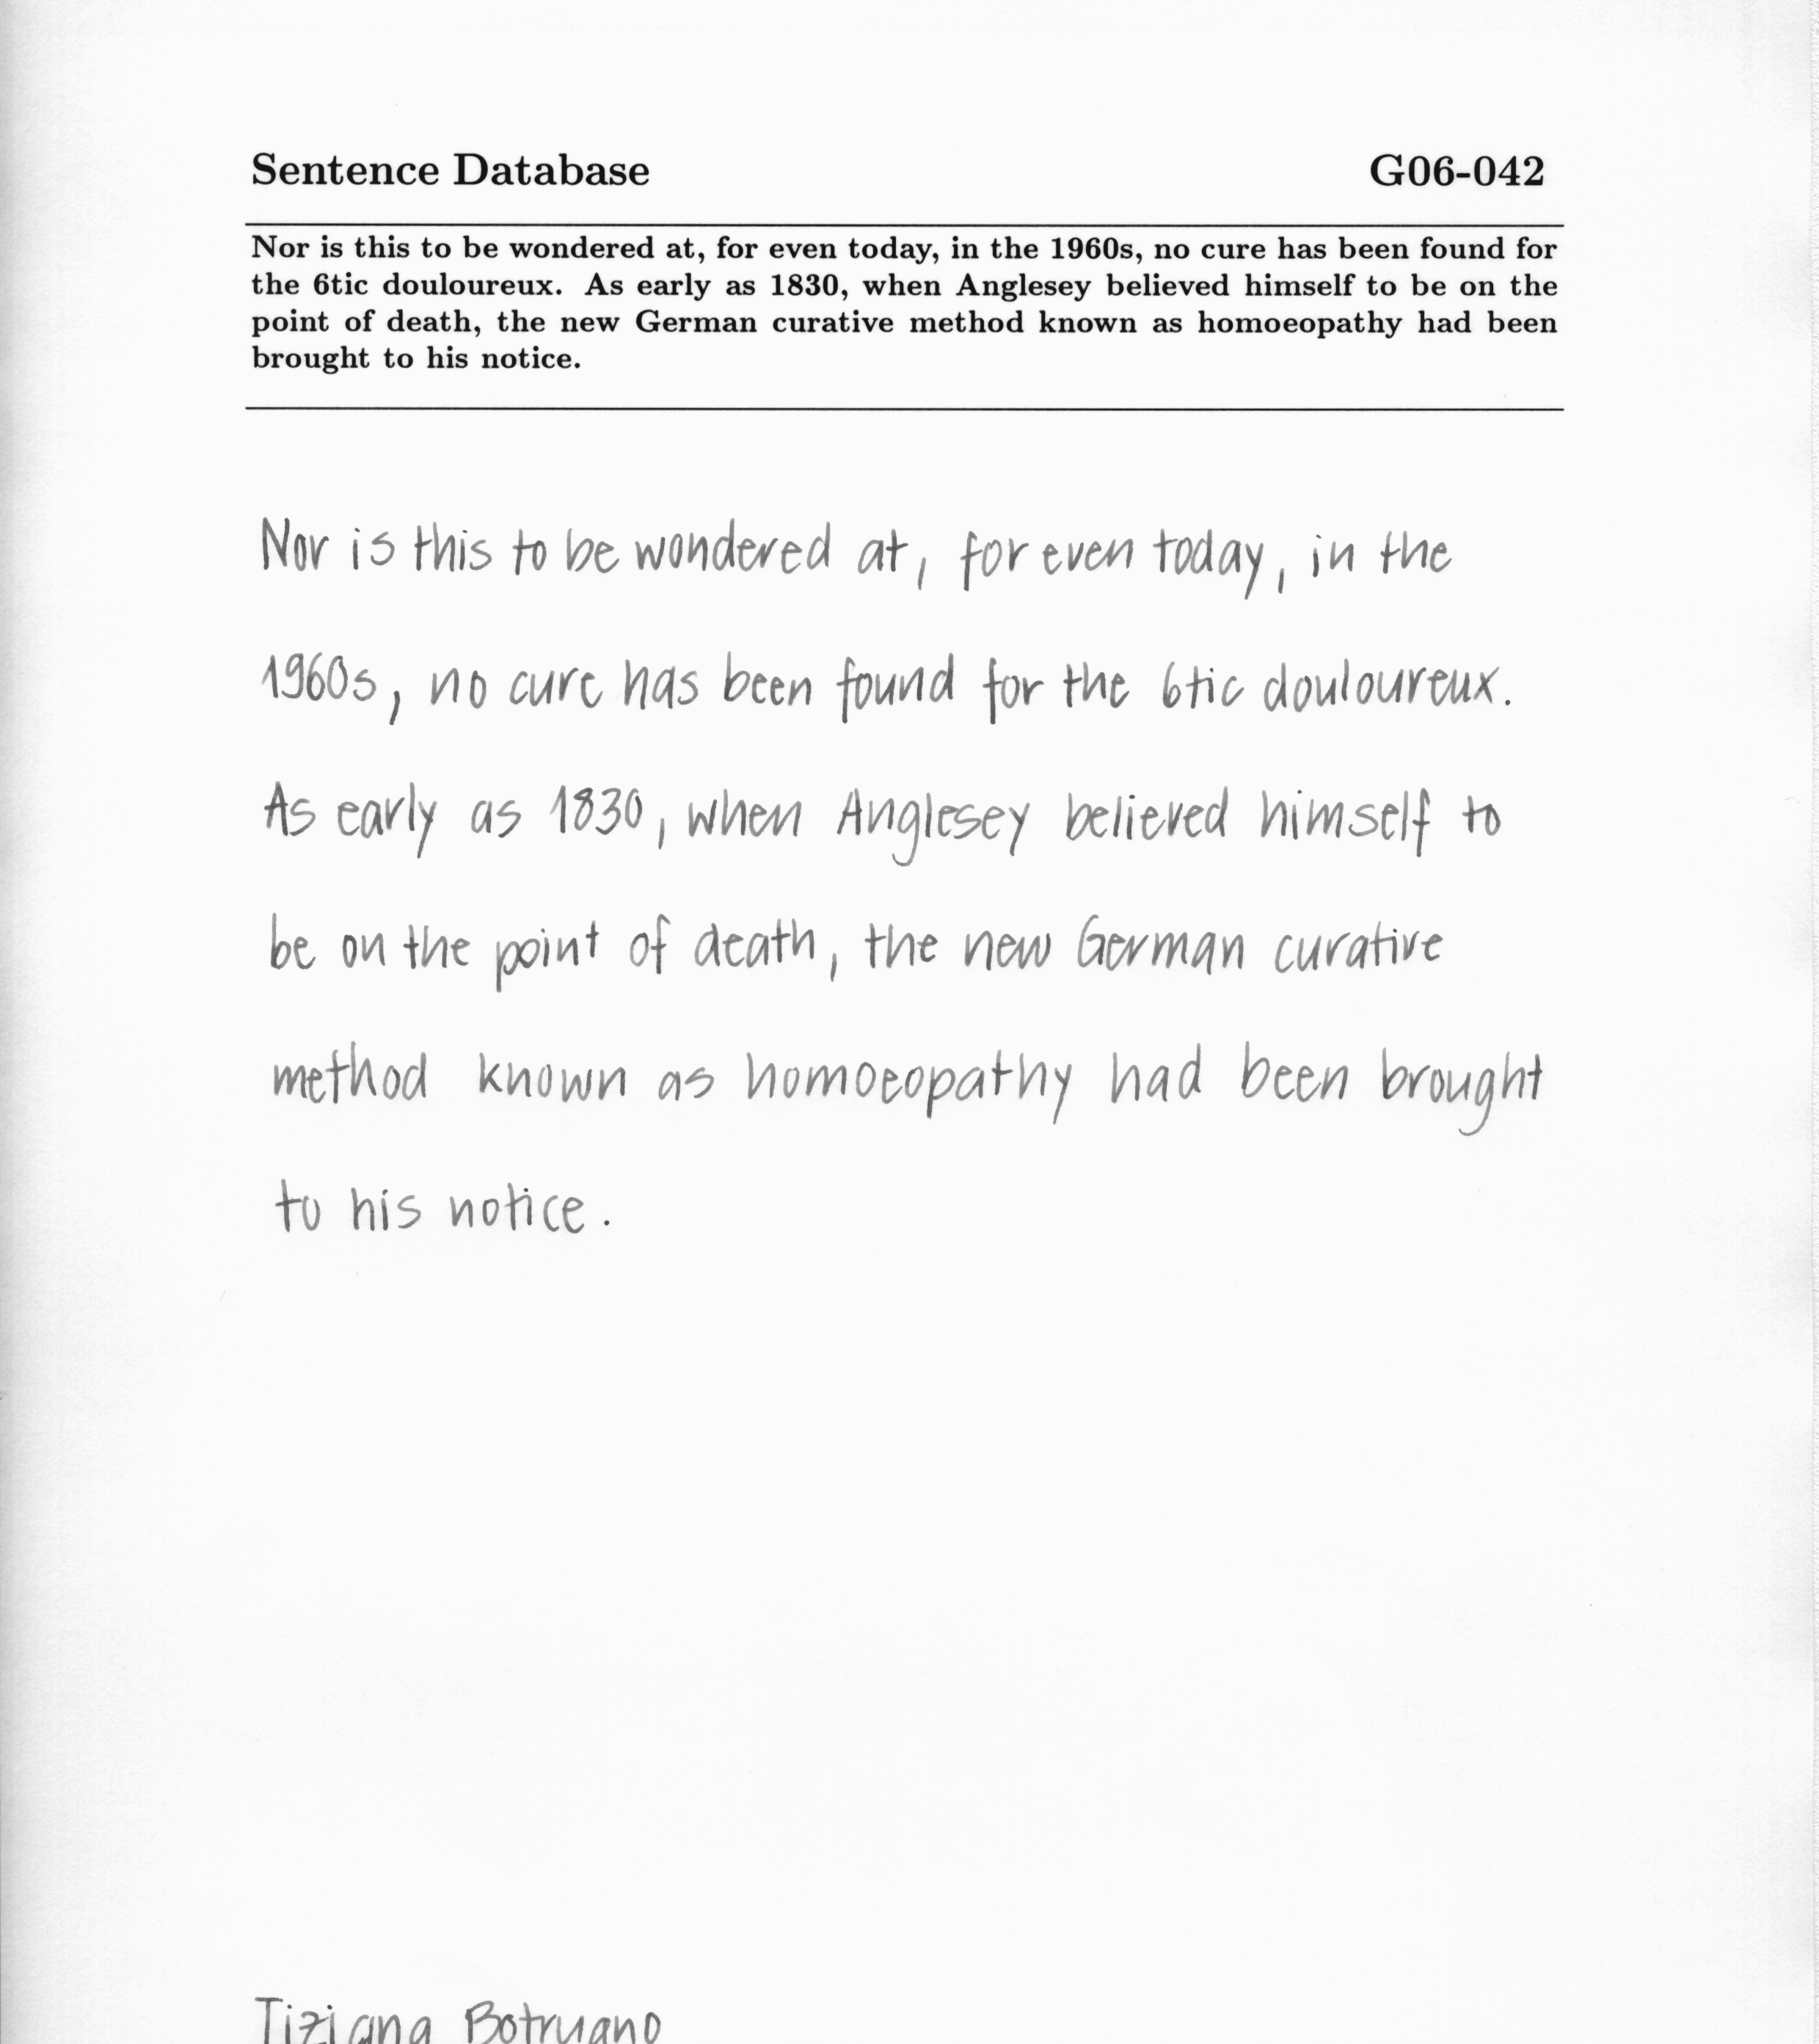 Sentence Database G06-042
Nor is this to be wondered at, for even today, in the 1960s, no cure has been found for
the 6tic douloureux. As early as 1830, when Anglesey believed himself to be on the
point of death, the new German curative method known as homoeopathy had been
brought to his notice.
Nor is this to be wondered at, for even today, in the
1960s, no cure has been found for the 6tic douloureux.
As early as 1830, when Anglesey believed himself to
be on the point of death, the new German curative
method known as homoeopathy had been brought
to his notice.
Tiziana Botrugno